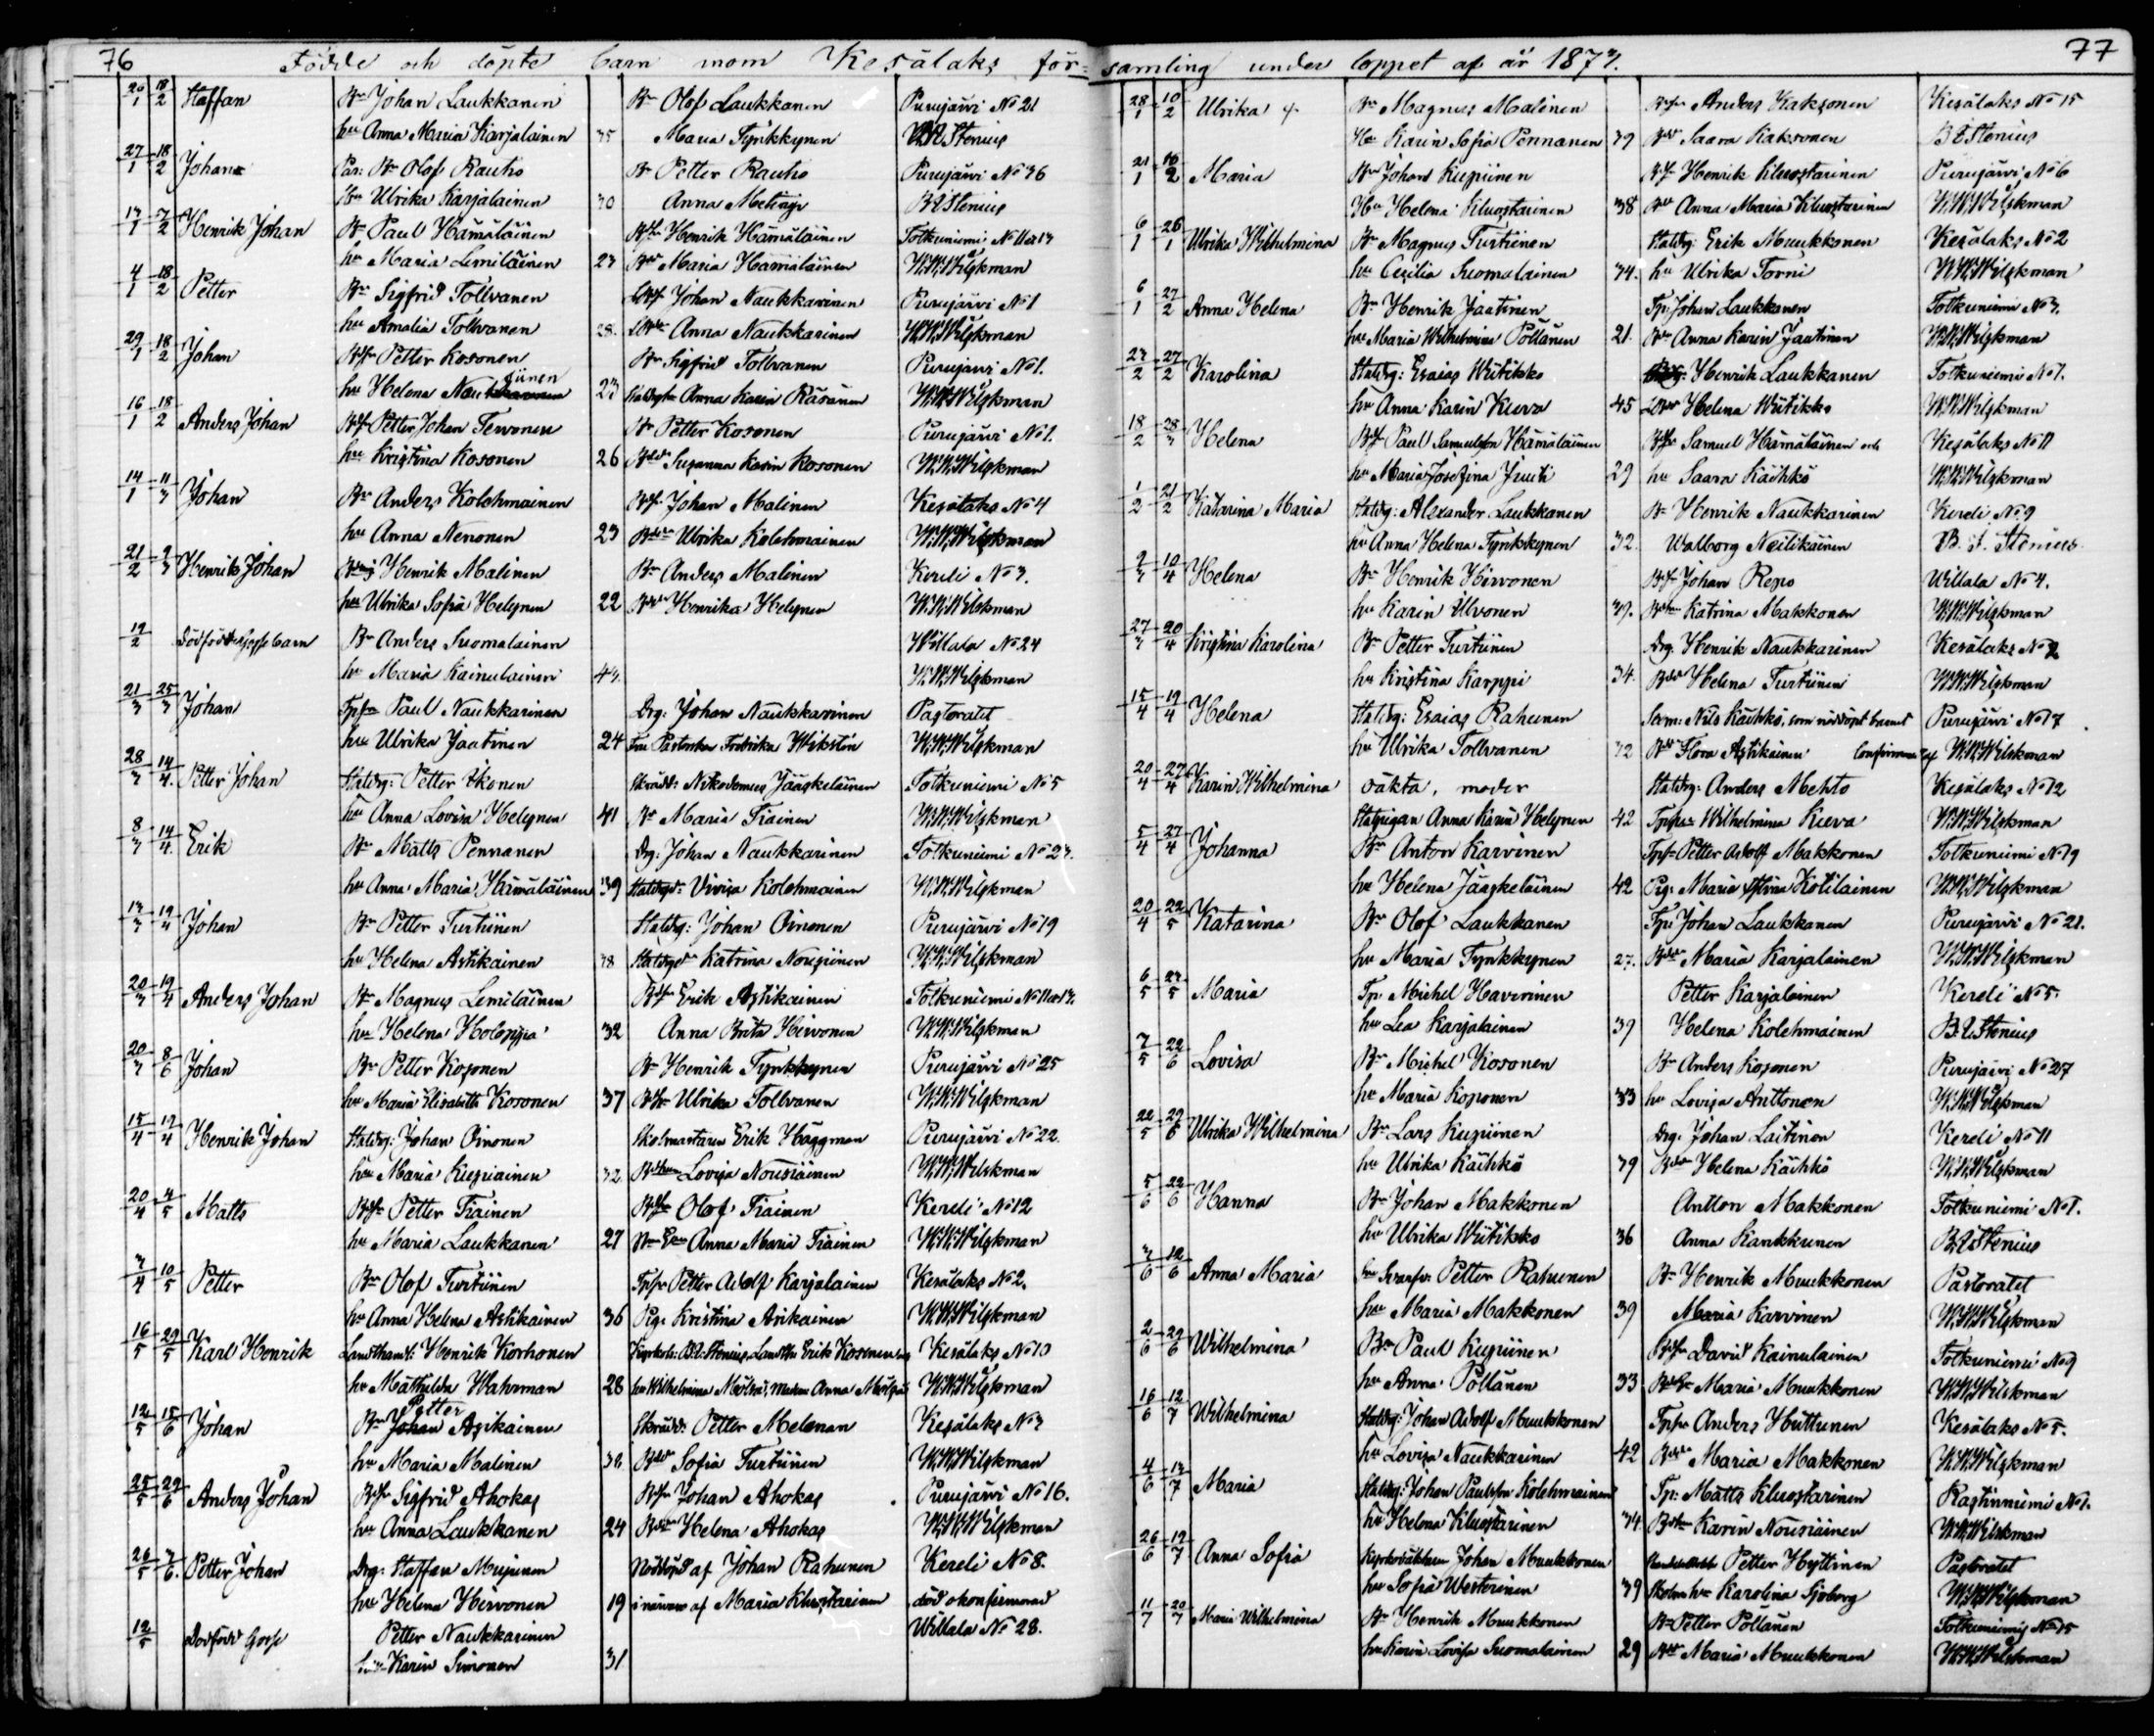 76 Födde och döpte barn inom Kesälaks för-
samling under loppet af år 1873. 77
20/1 18/2 Staffan Bn Johan Laukkanen Bn Olof Laukkanen Purujärvi No 21
hu Anna Maria Karjalainen 35 Maria Tynkkynen B E Stenius
27/1 18/2 Johan Bn Olof Rautio Bn Petter Rautio Purujärvi No 36
Hu Ulrika Karjalainen 30 Anna B E Stenius
13/1 7/2 Henrik Johan Bn Paul Hämäläinen Henrik Hämäläinen Totkuniemi
hu Maria Lemiläinen 23 Maria Hämäläinen W.W. Wilskman
4/1 18/2 Petter Bn Sigfrid Tollvanen Johan Naukkarinen Purujärvi No 1
hu Amalia Tollvanen 28. Anna Naukkarinen W.W. Wilskman
29/1 18/2 Johan Petter Kosonen Bn Sigfrid Tollvanen Purujärvi No 1.
hu Helena 23 Anna Karin Räsänen W.W. Wilskman
16/1 18/2 Anders Johan Petter Johan Tervonen Bn Petter Kosonen Purujärvi No 1.
hu Kristina Kosonen 26 Susanna Karin Kosonen W.W. Wilskman
14/1 11/3 Johan Bn Anders Kolehmainen Johan Malinen Kesälaks No 4
hu Anna Nenonen 23 Ulrika Kolehmainen W.W. Wilskman
21/2 9/3 Henrik Johan Henrik Malinen Bn Anders Malinen Kereli No 3.
hu Ulrika Sofia Helynen 22 Henrika Helynen W.W. Wilskman
19/2 Dödfödt barn Bn Anders Suomalainen Willala No 24
hu Maria Kainulainen 43. W.W. Wilskman
21/3 25/3 Johan Paul Naukkarinen Drg: Johan Naukkarinen Pastoratet
hu Ulrika Jaatinen 24 Fredrika Wikstén W.W. Wilskman
28/3 14/4 Petter Johan Staldrg: Petter Ikonen Skrädd: Nikodemus Jääskeläinen Totkuniemi No 5
hu Anna Lovisa Helynen 41 Maria Tiainen W.W. Wilskman
8/3 14/4 Erik Bn Matts Pennanen Drg. Johan Naukkarinen Totkuniemi No 23.
hu Anna Maria Hämäläinen 39 Kolehmainen W.W. Wilskman
13/3 19/4 Johan Bn Petter Turtiinen Staldrg: Johan Oinonen Purujärvi No 19
hu Helena Astikainen 38 Katrina Nousiainen W.W. Wilskman
20/3 19/4 Anders Johan Bn Magnus Lemiläinen Erik Astikainen Totkuniemi
hu Helena Holoppa 32 Anna Brita Hirvonen W.W. Wilskman
20/3 8/6 Johan Bn Petter Kosonen Bn Henrik Tynkkynen Purujärvi No 25
hu Maria Elisabeth Kosonen 37 Ulrika Tollvanen W.W. Wilskman
15/4 19/4 Henrik Johan Staldrg: Johan Oinonen Skolmästaren Erik Häggman Purujärvi No 22
hu Maria Kupiainen 32 Lovisa Nousiäinen W.W. Wilskman
20/4 4/5 Matts Petter Tiainen Olof Tiainen Kereli No 12
hu Maria Laukkanen 27 Anna Maria Tiainen W.W. Wilskman
3/4 10/5 Petter Bn Olof Turtiinen Petter Adolf Karjalainen Kesälaks No 2.
hu Anna Helena Astikainen 36 Pig. Kristina Asikainen W.W. Wilskman
16/5 29/5 Karl Henrik Landthandl: Henrik Korhonen Erik Kosonen Kesälaks No 10
hu Mathilda Wahrman 28 hu Wilhelmina Anna W.W. Wilskman
12/5 15/6 Johan Bn Petter Asikainen Skrädd: Petter Melenan Kesälaks No 3
hu Maria Malinen 32 Sofia Turtiinen W.W. Wilskman
25/5 29/6 Anders Johan Sigfrid Ahokas Johan Ahokas Purujärvi No 16.
hu Anna Laukkanen 24 Helena Ahokas W.W. Wilskman
26/5 7/6 Petter Johan Drg: Staffan Mujunen Nöddöpt af Johan Rahunen Kereli No 8.
hu Helena Hirvonen 19 i närvaro af Maria Kluostarinen död okonfirmerad
12/5 Dödfödd Gosse Petter Naukkarinen Willala No 28.
hu Karin Simonen 31
28/1 10/2 Ulrika Bn Magnus Malinen Anders Kaksonen Kesälaks No 15
Hu Karin Sofia Pennanen 39 Saara Kaksonen B E Stenius
21/1 10/2 Maria Bn Johan Kupiinen Henrik Kluostarinen Purujärvi No 6
Hu Helena Kluostarinen 38 Anna Maria Kluostarinen W.W. Wilskman
6/1 26/1 Ulrika Wilhelmina Bn Magnus Turtiinen Staldrg: Erik Muukkonen Kesälaks No 2
hu Cecilia Suomalainen 34. hu Ulrika Torni W.W. Wilskman
6/1 27/2 Anna Helena Bn Henrik Jaatinen Johan Laukkanen Totkuniemi No 3.
hu Maria Wilhelmina Pöllänen 21. Anna Karin Jaatinen W.W. Wilskman
23/2 27/2 Karolina Staldrg: Esaias Wiitikko Henrik Laukkanen Totkuniemi No 7.
hu Anna Karin Kurva 45 Helena Wiitikko W.W. Wilskman
18/2 28/3 Helena Paul Samuelsson Hämäläinen Samuel Hämäläinen och Kesälaks No 11
hu Maria Josefina Juuti 29 hu Saara Käihkö W.W. Wilskman
1/2 21/2 Katarina Maria Staldrg: Alexander Laukkanen Bn Henrik Naukkarinen Kereli No 9
hu Anna Helena Tynkkynen 32. Walborg Neilikäinen B. E. Stenius
2/3 10/4 Helena Bn Henrik Hirvonen Johan Repo Willala No 4.
hu Karin Ulvonen 39. Katrina Makkonen W.W. Wilskman
27/3 20/4 Kristina Karolina Bn Petter Turtiinen Drg. Henrik Naukkarinen Kesälaks No 2
hu Kristina Karppi 34. Helena Turtiinen W.W. Wilskman
15/4 19/4 Helena Staldrg: Esaias Rahunen Nils Käihkö, som nöddöpt barnet Purujärvi No 17
hu Ulrika Tollvanen 32 Flora Astikainen Confirmerad af W.W. Wilskman
20/4 27/4 Karin Wilhelmina oäkta, moder Staldrg. Anders Mehto Kesälaks No 12
Anna Karin Helynen 42 Wilhelmina Kurva W.W. Wilskman
5/4 27/4 Johanna Bn Anton Karvinen Petter Adolf Makkonen Totkuniemi No 9
hu Helena Jääskeläinen 42 Pig. Maria Kotilainen W.W. Wilskman
20/4 22/5 Katarina Bn Olof Laukkanen Johan Laukkanen Purujärvi No 21.
hu Maria Tynkkynen 27. Maria Karjalainen W.W. Wilskman
6/5 23/5 Maria Tp. Michel Haverinen Petter Karjalainen Kereli No 5.
hu Lea Karjalainen 39 Helena Kolehmainen B. E. Stenius
7/5 22/6 Lovisa Bn Michel Kosonen Bn Anders Kosonen Purujärvi No 27
hu Maria Koponen 33 hu Lovisa Anttonen W.W. Wilskman
22/5 29/6 Ulrika Wilhelmina Bn Lars Kupiinen Drg. Johan Laitinen Kereli No 11
hu Ulrika Käihkö 39 Helena Käihkö W.W. Wilskman
5/6 22/6 Hanna Bn Johan Makkonen Antton Makkonen Totkuniemi No 7.
hu Ulrika Wiitikko 36 Anna Kankkunen B. E. Stenius
3/6 12/6 Anna Maria Petter Rahunen Bn Henrik Muukkonen Pastoratet
hu Maria Makkonen 39 Maria Karvinen W.W. Wilskman
2/6 29/6 Wilhelmina Bn Paul Kupiinen David Kainulainen Totkuniemi No 9
hu Anna Pöllänen 33 Maria Muukkonen W.W. Wilskman
16/6 12/7 Wilhelmina Staldrg: Johan Adolf Muukkonen Anders Huttunen Kesälaks No 5.
hu Lovisa Naukkarinen 42 Maria Makkonen W.W. Wilskman
4/6 13/7 Maria Staldrg: Johan Paulsson Kolehmainen Tp: Matts Kluostarinen Rastinniemi No 1.
hu Helena Kluostarinen 34. Karin Nousiäinen W.W. Wilskman
26/6 19/7 Anna Sofia Kyrkoväktaren Johan Muukkonen Petter Hyttinen Pastoratet
hu Sofia Westerinen 39 hu Karolina Sjöberg W.W. Wilskman
11/7 20/7 Maria Wilhelmina Bn Henrik Muukkonen Bn Petter Pöllänen Totkuniemi No 15
hu Karin Lovisa Suomalainen 29 Maria Muukkonen W.W. Wilskman